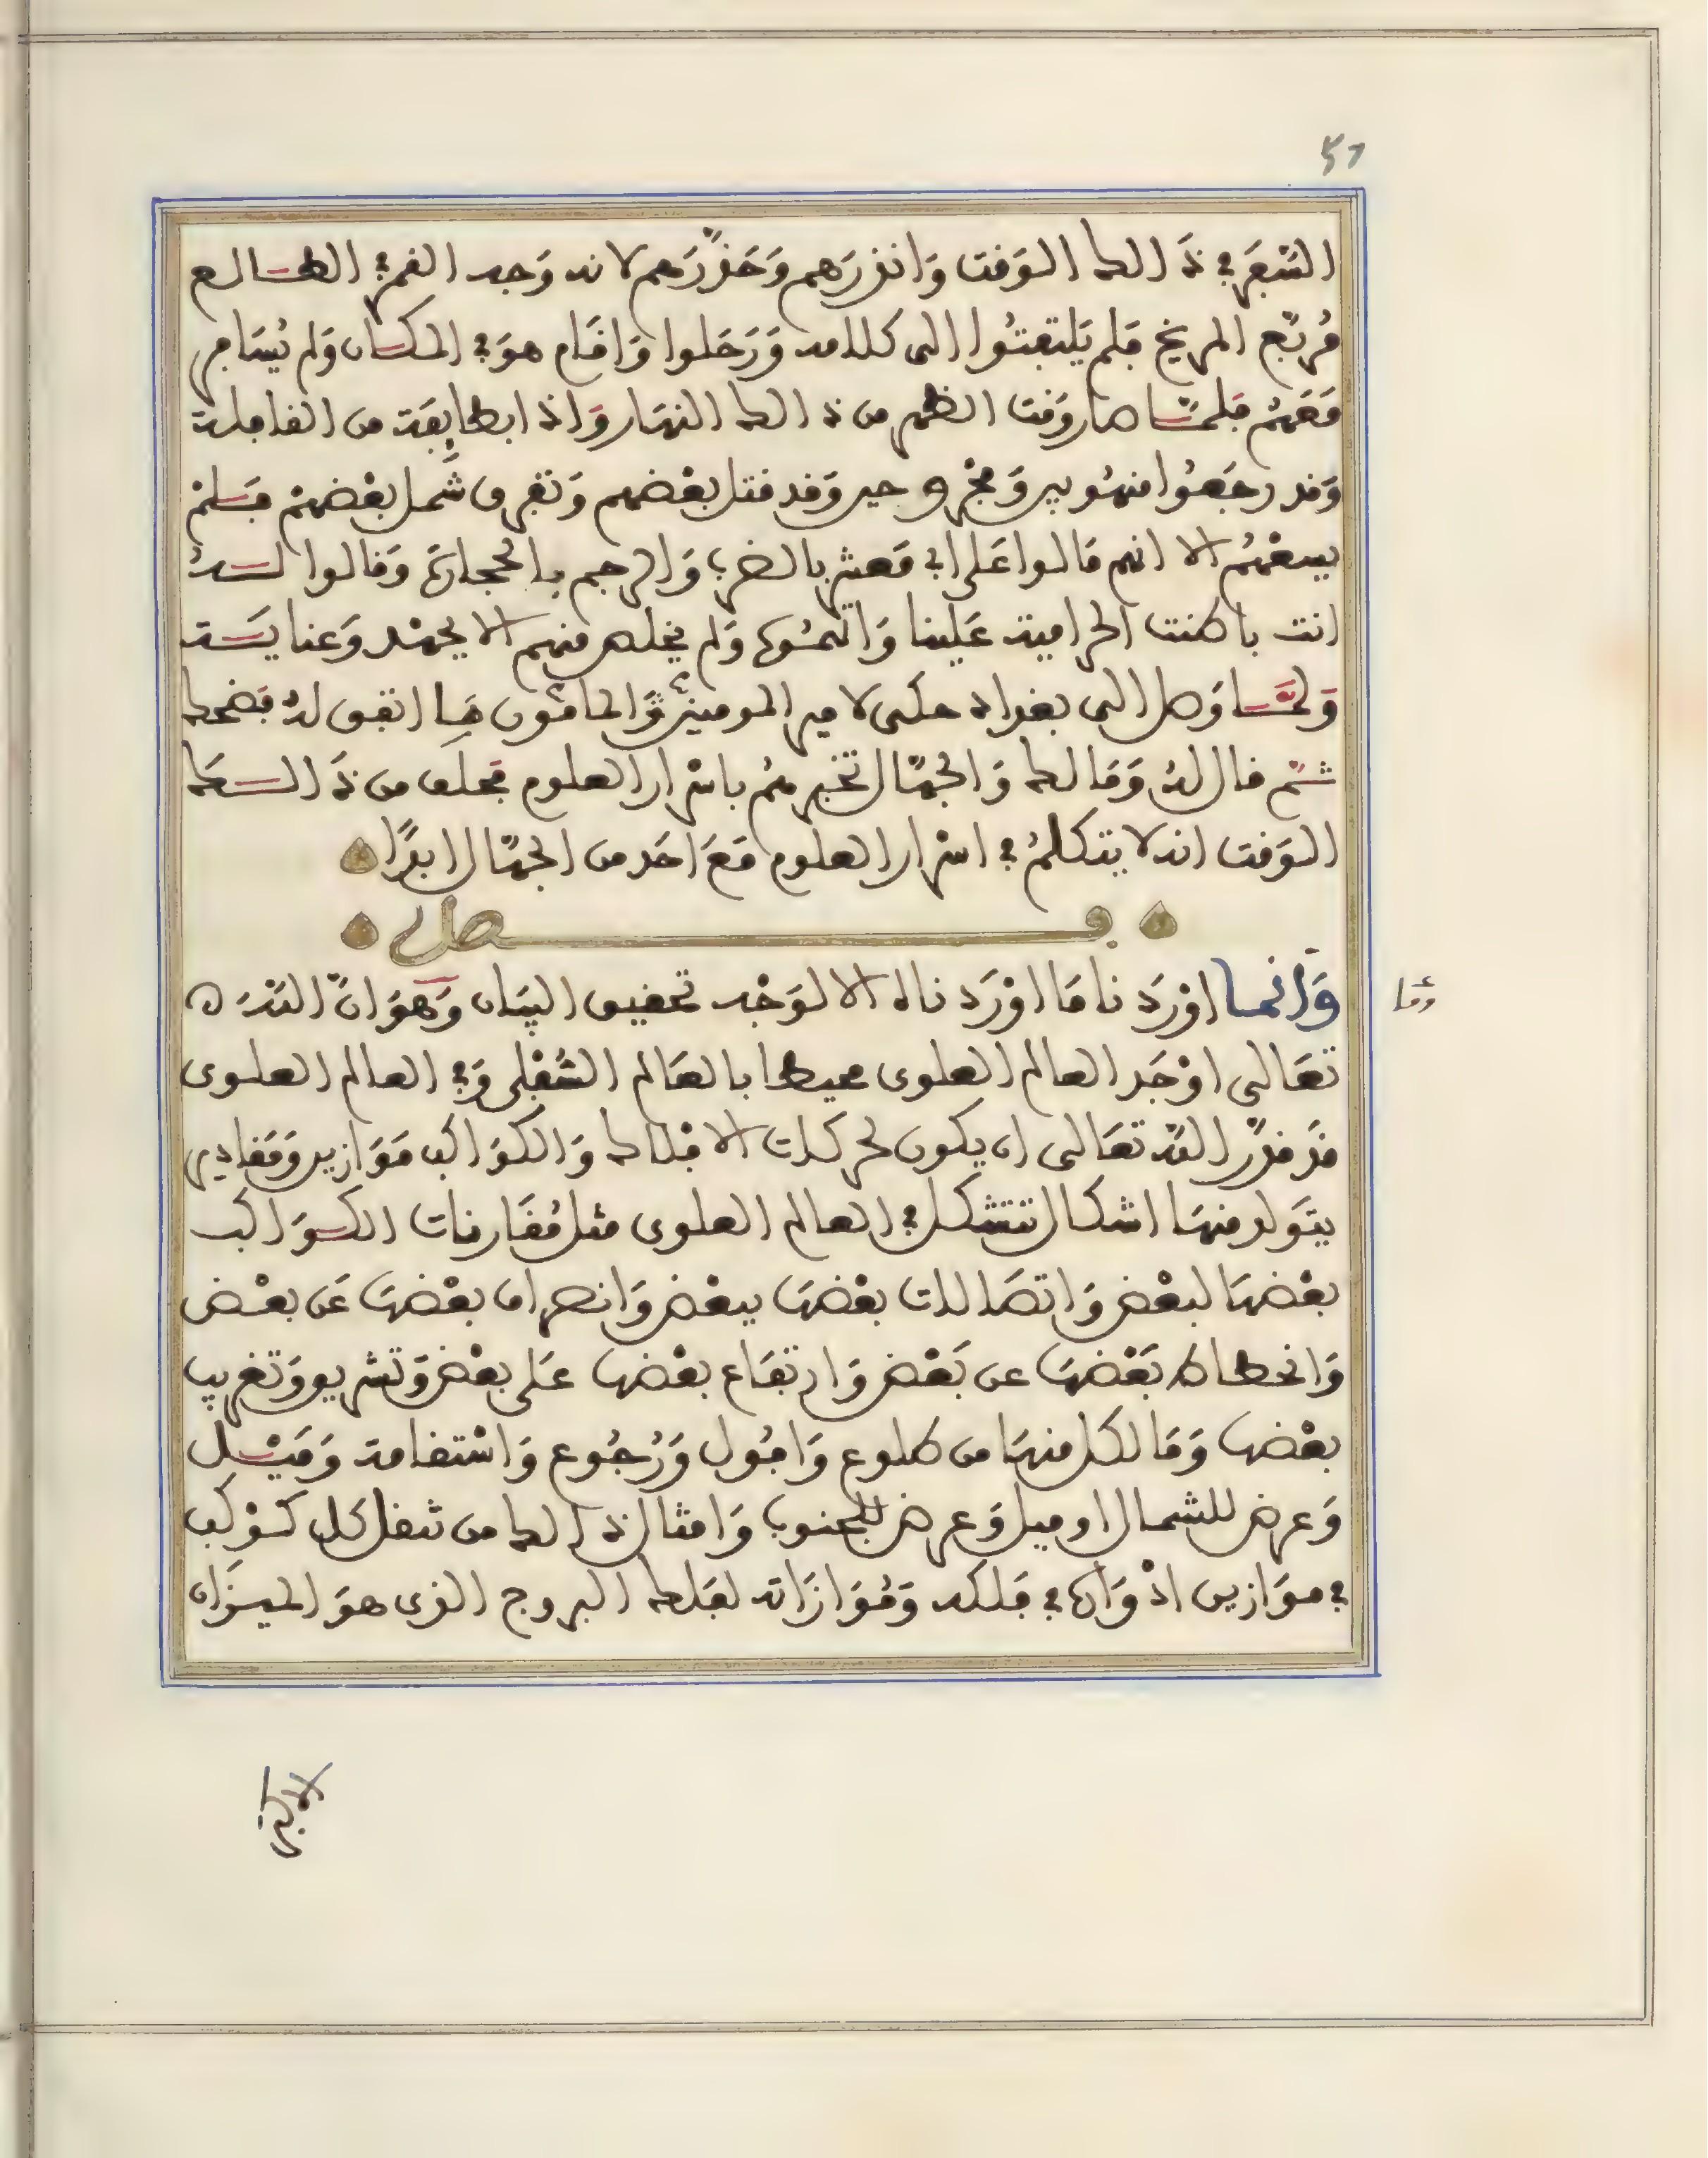 السّفر في ذالك الوقت وانذرهم وحذّرهم لانه وجد القمر في الطالع
مربّع المريخ فلم يلتفتوا الى كلامه ورحلوا واقام هو في المكان ولم يسافر
معهم فلمّا صار وقت الظهر من ذالك النهار واذا بطايفة من القافلة
وقد رجعوا منهوبين ومجروحين وقد قتل بعضهم وتفرق شمل بعضهم فسلم
بعضهم الا انهم مالوا على ابي معشر بالضرب والرجم بالحجارة وقالوا له
انت باطنت الحرامية علينا واتهموه ولم يخلص منهم الا بجهد وعناية
ولمّا وصل الى بغداد حكى لامير المومنين المامون ما اتفق له فضحك
ثم قال له ومالك والجهّال تخبرهم باسرار العلوم فحلف من ذالك
الوقت انه لا يتكلم في اسرار العلوم مع احد من الجهّال ابدًا
فصل
وانما اوردنا ما اوردناه الا لوجه تحقيق البيان وهو انّ الله
تعالى اوجد العالم العلوى محيطا بالعالم السّفلى وفي العالم العلوى
قد قدّر الله تعالى ان يكون لحركات الافلاك والكواكب موازين ومقادير
يتولد منها اشكال تتشكل في العالم العلوى مثل مقارنات الكواكب
بعضها لبعض واتصالات بعضها ببعض وانصراف بعضها عن بعض
وانحطاط بعضها عن بعض وارتفاع بعضها على بعض وتشريق وتغريب
بعضها وما لكل منها من طلوع وافول ورجوع واستقامة وميل
وعرض للشمال او ميل وعرض للجنوب وامثال ذالك من ثقل كل كوكب
في موازين ادواره في فلكه وموازاته لفلك البروج الذى هو الميزان
الاكبر